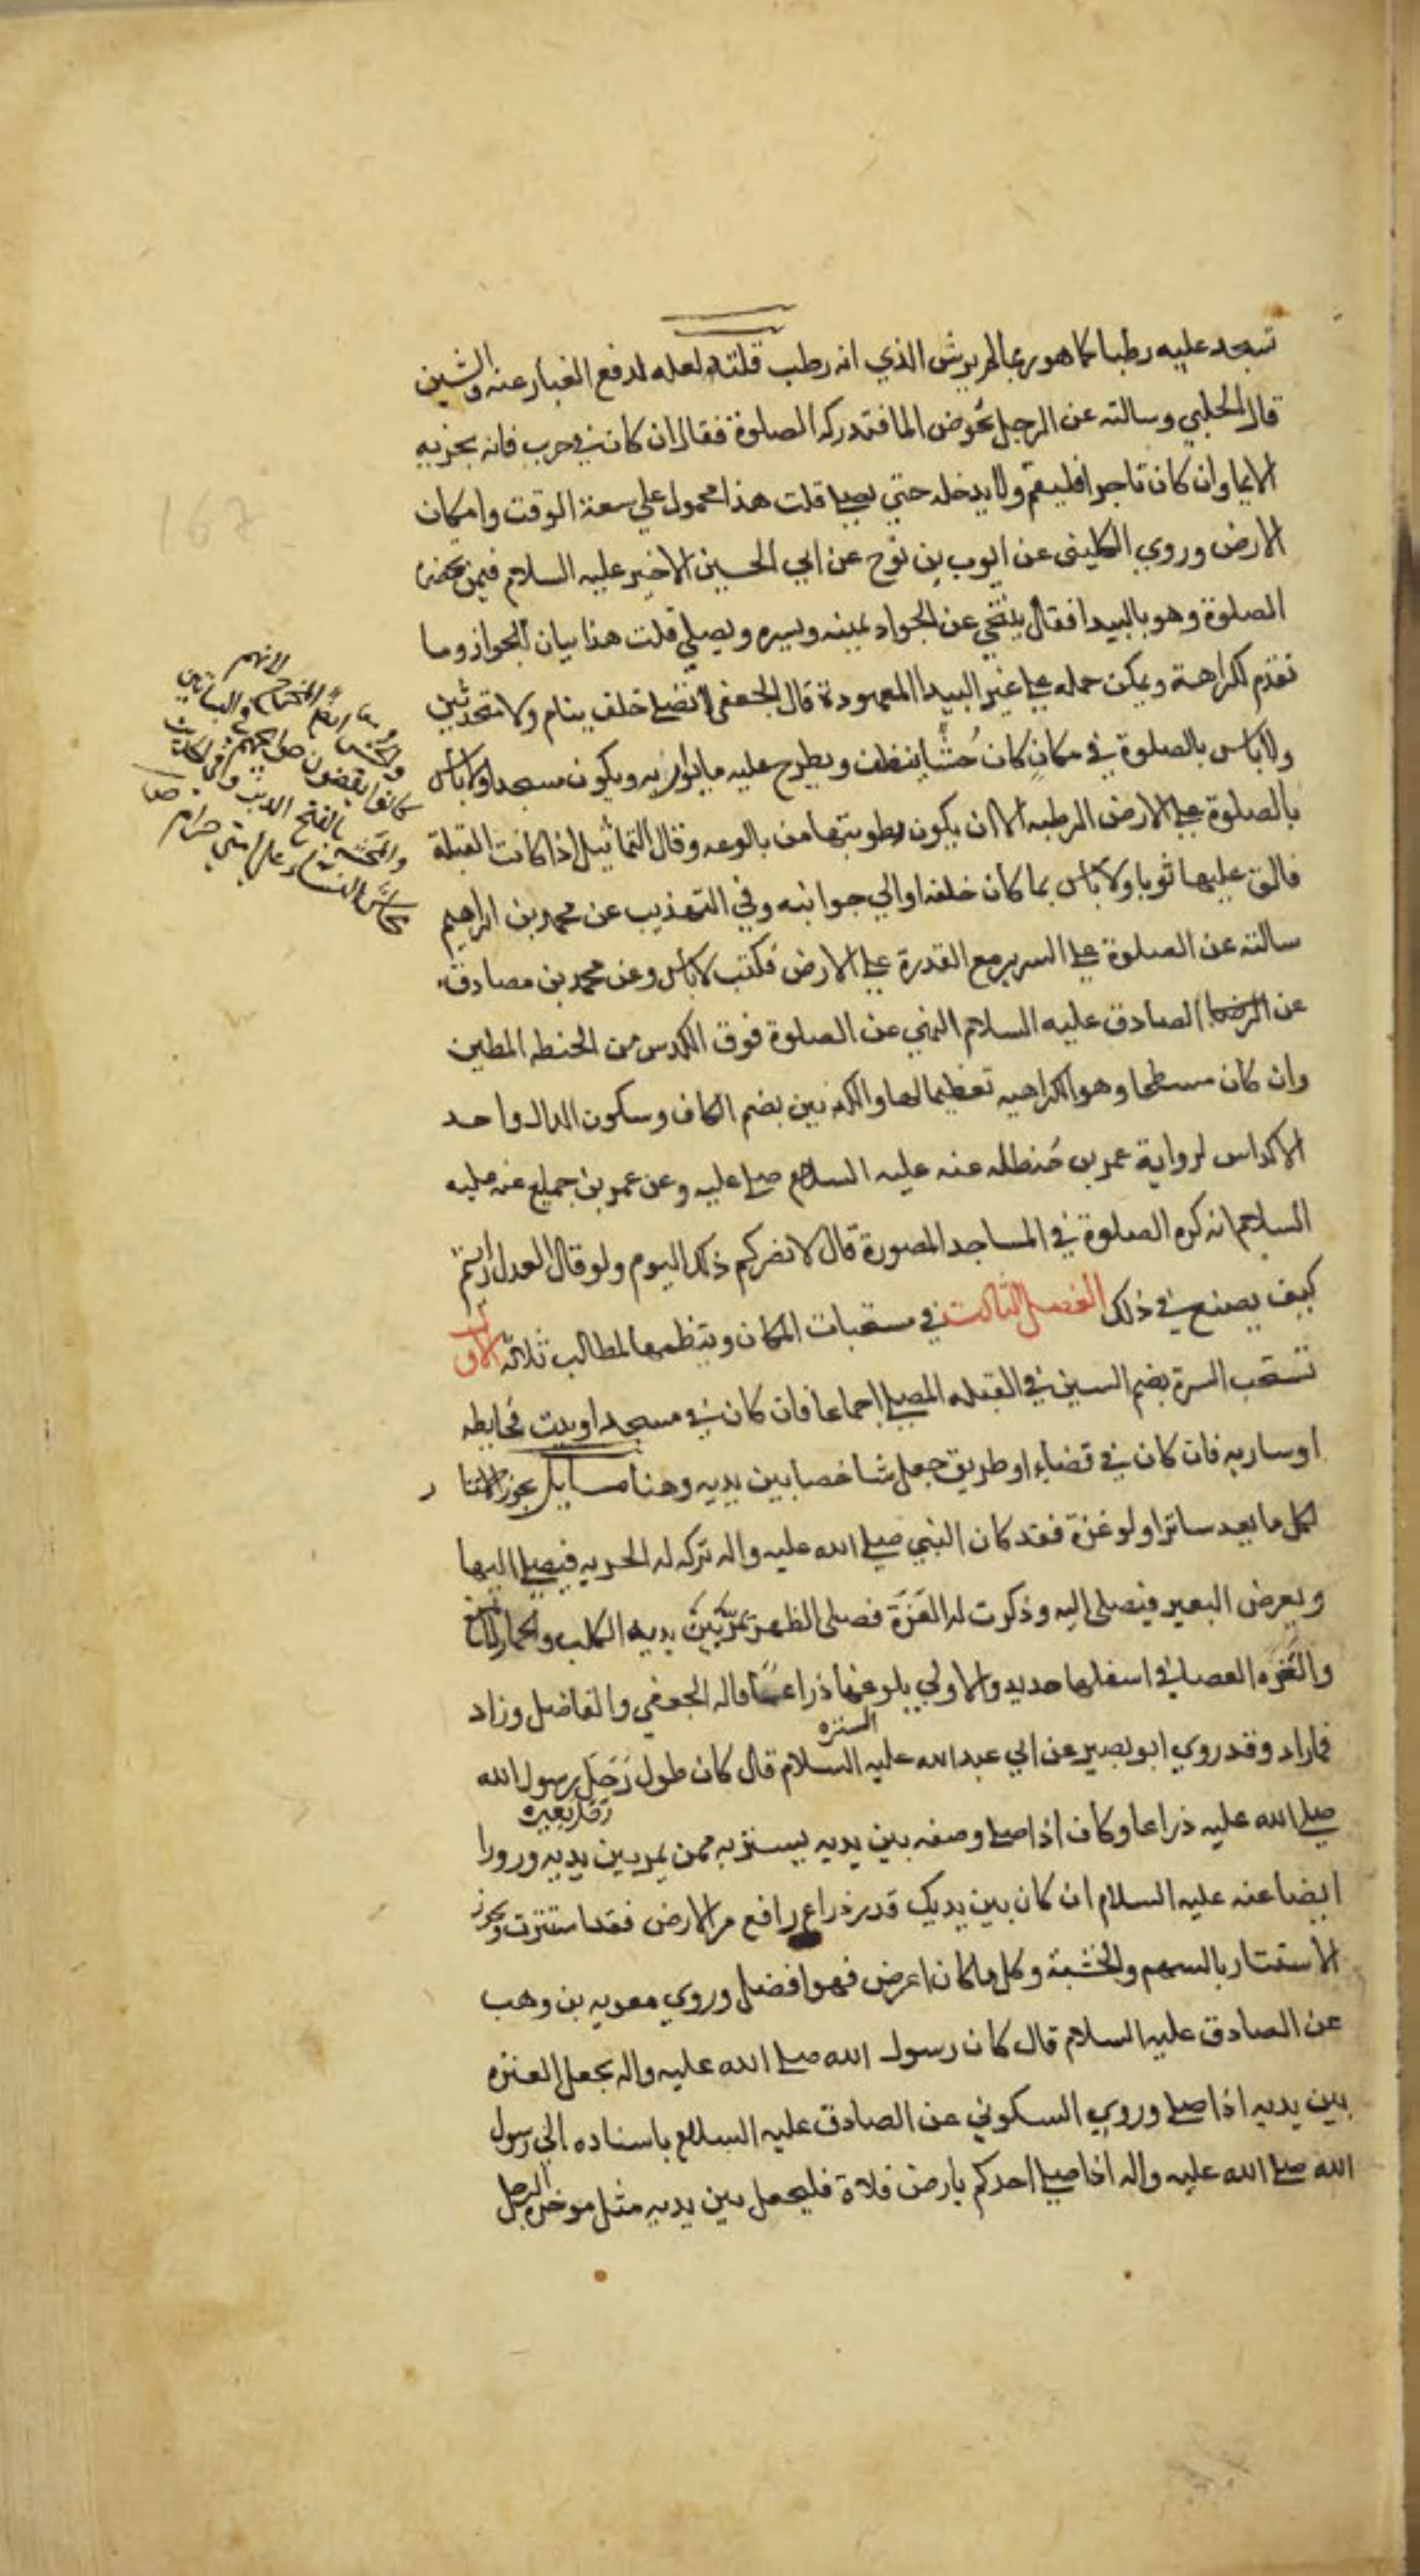 تسجد عليه رطبا كما هو ربما لم يرش الذي انه رطب قلت لعله لدفع الغبار عنه والشين
قال الحلبي وسالته عن الرجل يخوض الما فتدركه الصلوة فقال ان كان في حرب فانه يجزيه
الايما وان كان تاجرا فليقم ولا يدخله حتي يصلي قلت هذا محمول علي سعة الوقت وامكان
الارض وروي الكليني عن ايوب بن نوح عن ابي الحسين الاخير عليه السلام فيمن تحضره
الصلوة وهو بالبيدا فقال يتنحي عن الجواد يمينه ويسره ويصلي قلت هذا بيان الجواز وما
تقدم لكراهية ويمكن حمله علي غير البيدا المعهودة قال الجعفي لا تصلي خلف ينام ولا متحدثين
ولا باس بالصلوة في مكان كان حشا ينظف ويطرح عليه ما يواريه ويكون مسجدا ولا باس
بالصلوة علي الارض الرطبه الا ان يكون رطوبتها من بالوعه وقال التماثيل اذا كانت القبلة
فالق عليها ثوبا ولا باس بما كان خلفه او الي جوانبه وفي التهذيب عن محمد بن ابراهيم
سالته عن الصلوة علي السرير مع القدرة علي الارض فكتب لا باس وعن محمد بن مصادف
عن الصادق عليه السلام النهي عن الصلوة فوق الكدس من الحنطه المطين
وان كان مسطحا وهو الكراهيه تعظيما لها والكدس بضم الكاف وسكون الدال واحد
الاكداس لرواية عمر بن حنظله عنه عليه السلام صلي عليه وعن عمر بن جميع عنه عليه
السلام انه كره الصلوة في المساجد المصورة قال لا يضركم ذلك اليوم ولو قال العدل رايتم
كيف يصنع في ذلك الفصل الثالث في مستحبات المكان وينظمها لمطالب ثلاثة الاول
تستحب السترة بضم السين في القبله المصلي اجماعا فان كان في مسجد او بيت فحايطه
او ساريه فان كان في فضاء او طريق جعل شاخصا بين يديه وهنا مسايل يجوز الاستتار
لكل ما يعد ساترا ولو عنزة فقد كان النبي صلي الله عليه واله تركه له الحربه فيصلي اليها
ويعرض البعير فيصلي اليه وذكرت له العنزة فصلي الظهر يمر بين يديه الكلب والحمار
والعنزه العصا في اسفلها حديد والاولي بلوغها ذراعا قاله الجعفي والفاضل وزاد
فما زاد وقد روي ابو بصير عن ابي عبد الله عليه السلام قال كان طول رحل رسول الله
صلي الله عليه ذراعا وكان اذا صلي وضعه بين يديه يستتر به ممن يمر بين يديه ورووا
ايضا عنه عليه السلام ان كان بين يديك قدر ذراع رافع من الارض فقد استترت ويجوز
الاستتار بالسهم والخشبة وكل ما كان اعرض فهو افضل وروي معويه بن وهب
عن الصادق عليه السلام قال كان رسول الله صلي الله عليه واله يجعل العنزه
بين يديه اذا صلي وروي السكوني عن الصادق عليه السلام باسناده الي رسول
الله صلي الله عليه واله اذا صلي احدكم بارض فلاة فليجعل بين يديه مثل موخرة الرحل
لانهم
كانوا يقضون حوايجهم في البساتين
والمحشه بالفتح الدبر وفي الحديث
محاش النساء علي امتي حرام ص